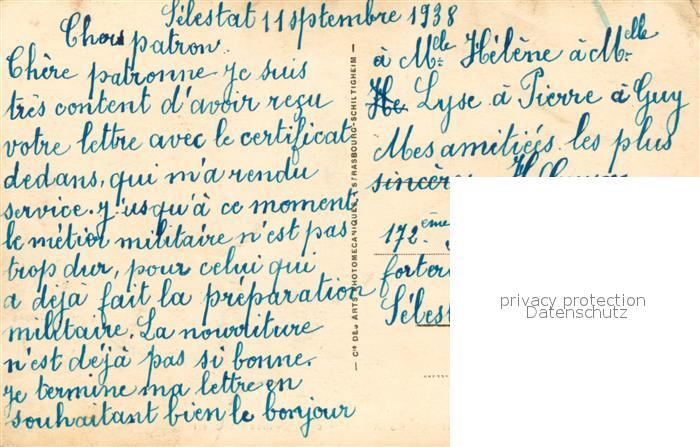 Sélestat 11 septembre 1938
Cher patron.
Chère patronne je suis
très content d'avoir reçu
votre lettre avec le certificat
dedans, qui m'a rendu
service. j'usqu'à ce moment
le métier militaire n'est pas
trop dur, pour celui qui
a déjà fait la préparation
militaire. La nourriture
n'est déjà pas si bonne.
je termine ma lettre en
souhaitant bien le bonjour
à Mlle Hélène à Mlle
He Lyse à Pierre à Guy
Mes amitiées les plus
sincères
172ème
Sélest
Cie DES ARTS PHOTOMECANIQUES, STRASBOURG-SCHILTIGHEIM
privacy protection
Datenschutz